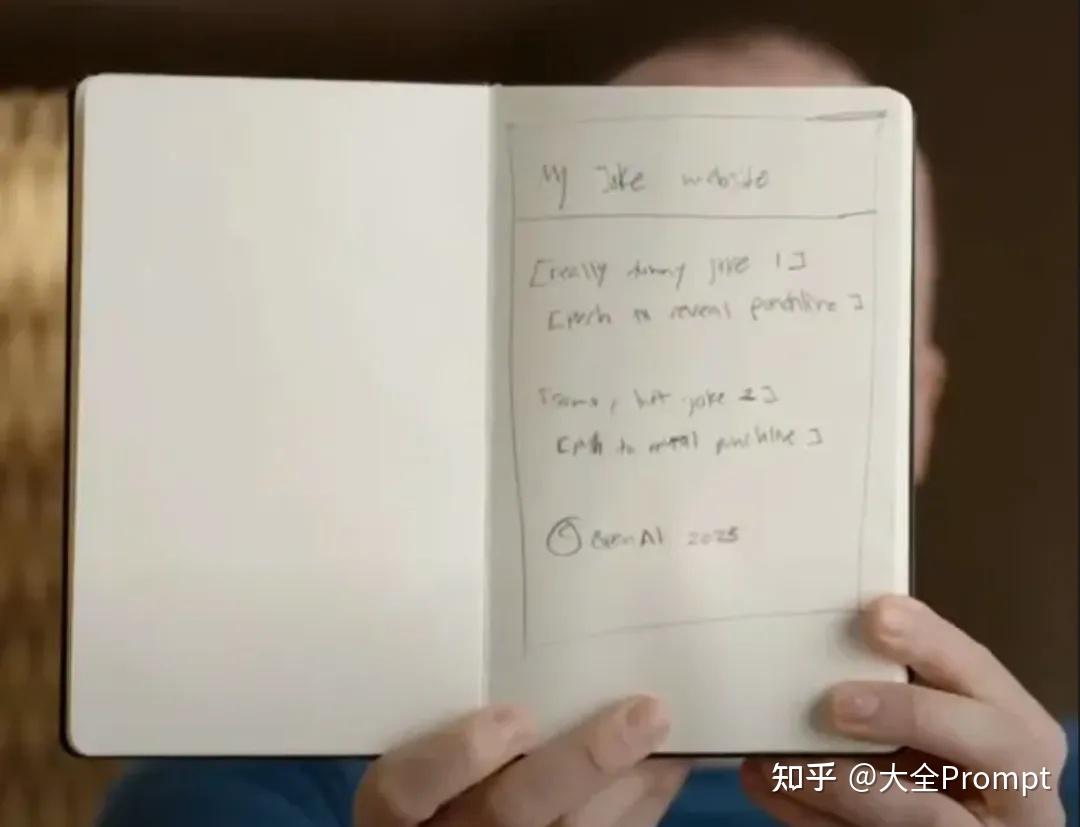 My Joke website
[really funny joke 1]
[push to reveal punchline]
joke 2]
[push to reveal punchline]
© OpenAI 2023
知乎 @大全Prompt